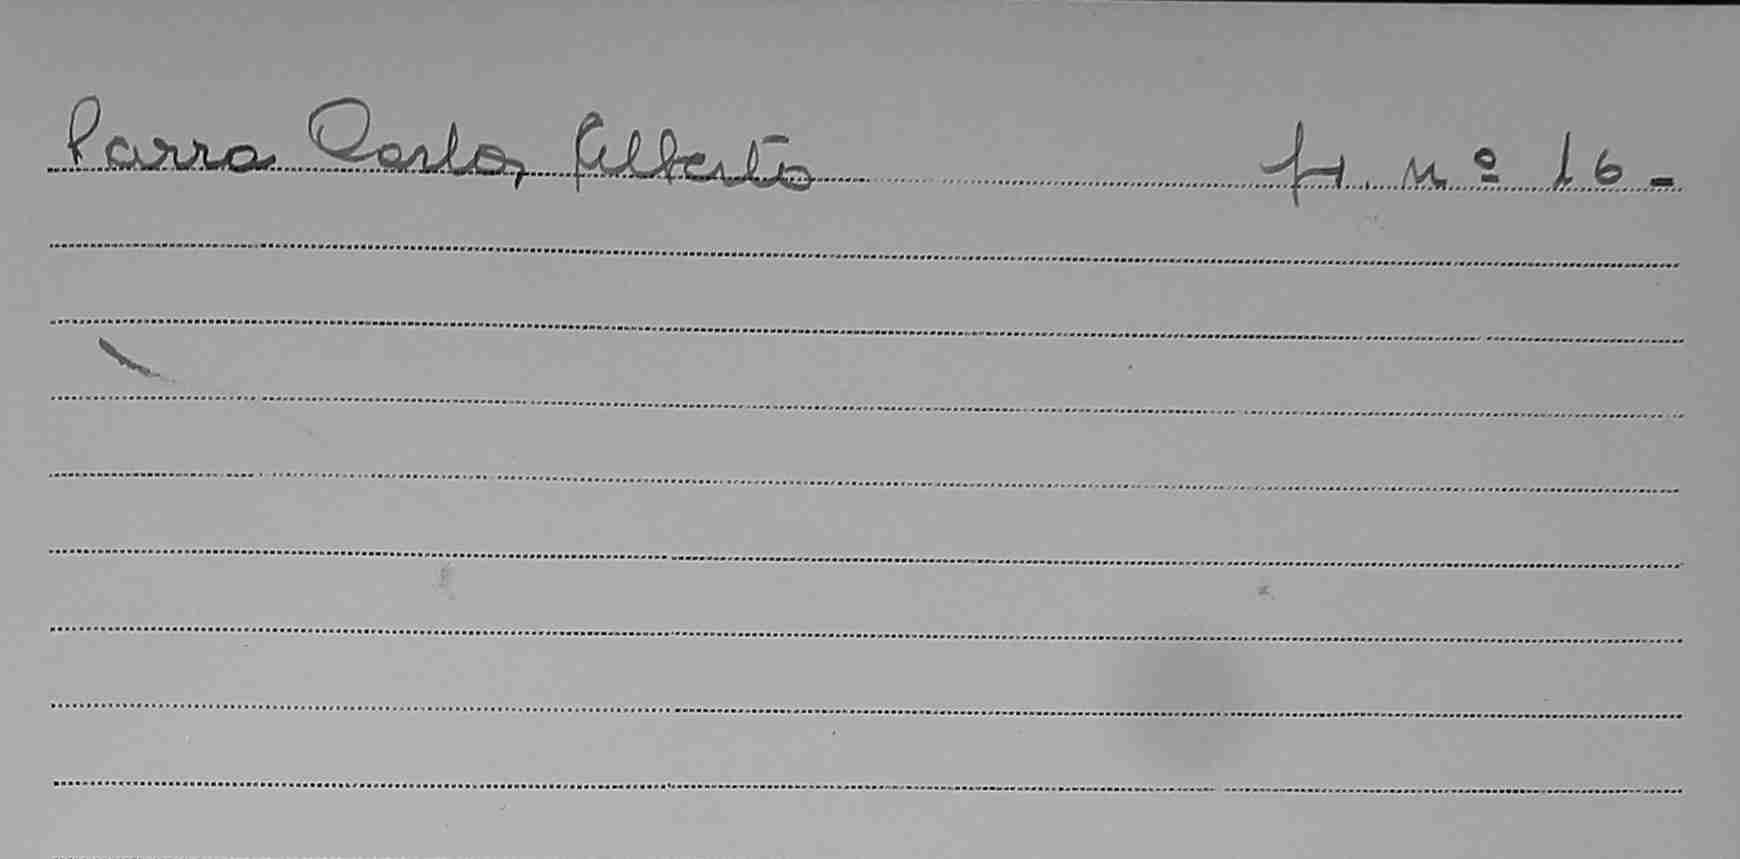 Parra Carlos Alberto H. nº 16-